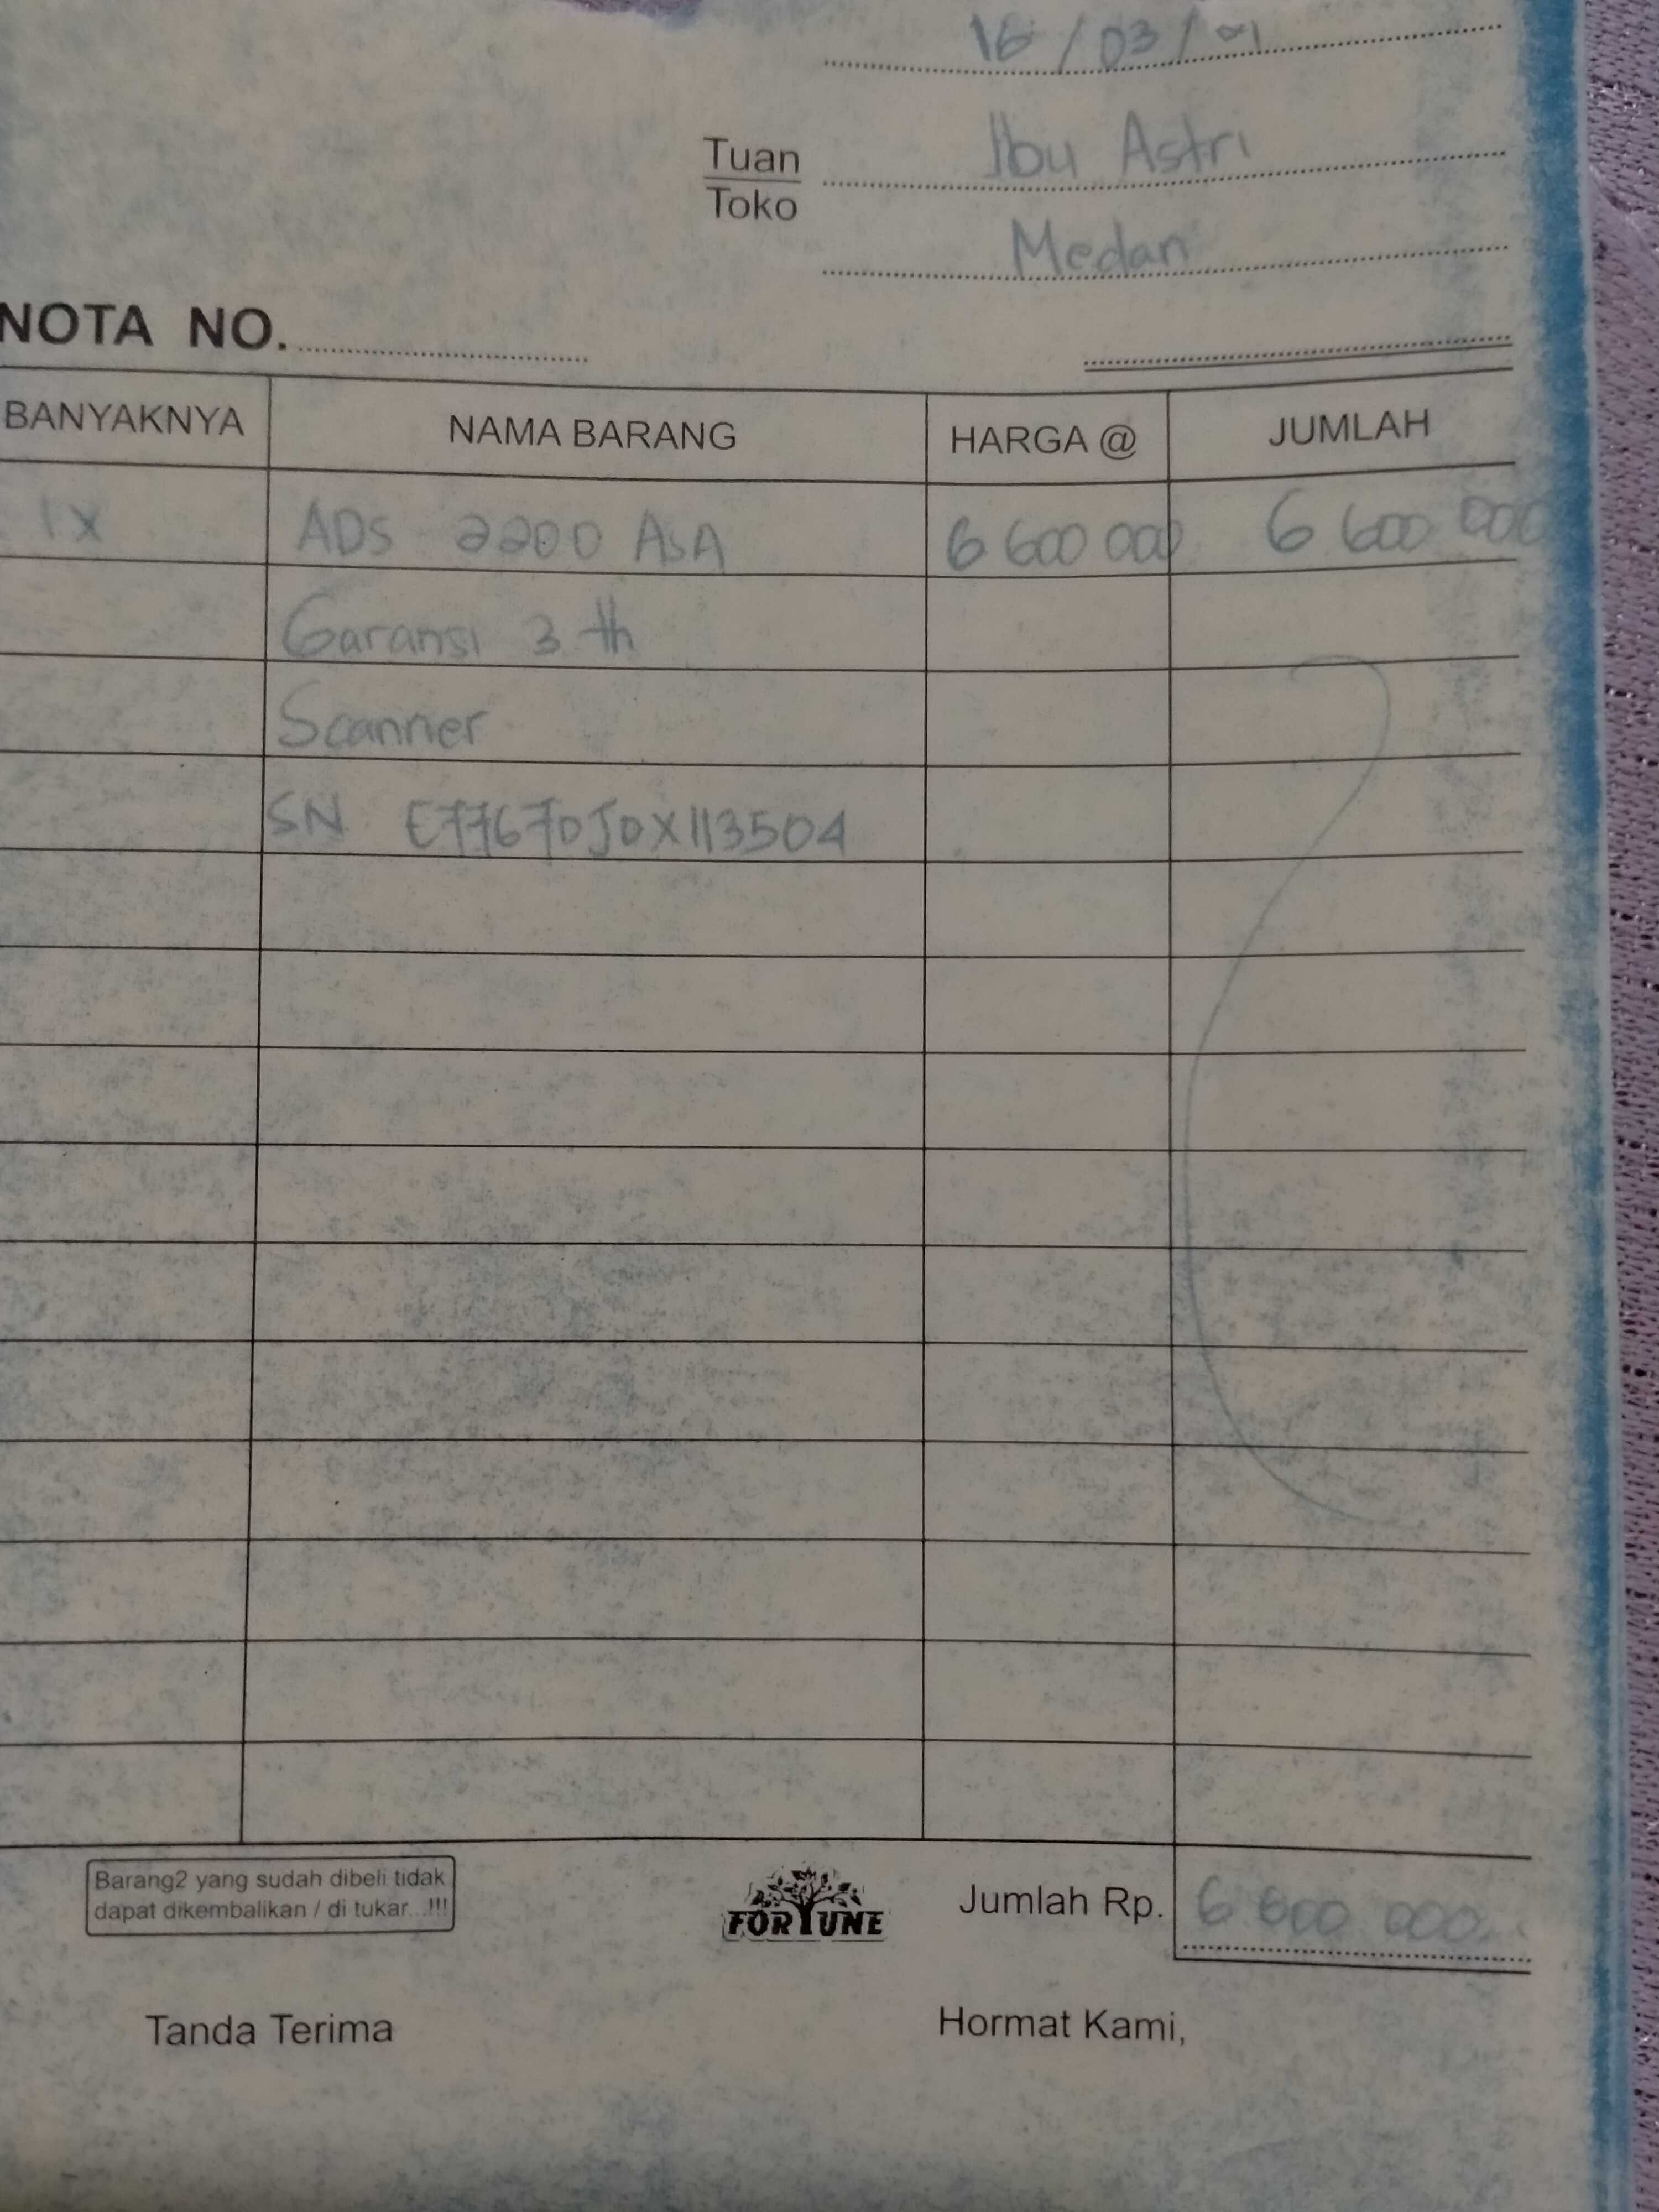 16/03/21
Tuan Ibu Astri
Toko
Medan
NOTA NO.
BANYAKNYA NAMA BARANG HARGA @ JUMLAH
1X ADS 2200 6 600 000 6 600 000
Garansi 3 th
Scanner
SN E77670J0X113504
Barang2 yang sudah dibeli tidak
dapat dikembalikan / di tukar...!!!
FORTUNE
Jumlah Rp. 6 600 000
Tanda Terima Hormat Kami,